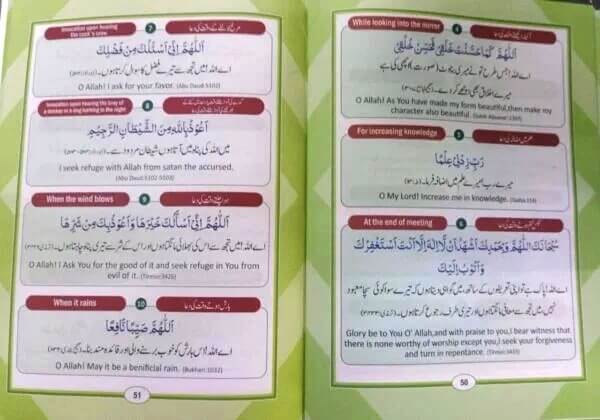 While looking into the mirror
4
آئینہ دیکھتے وقت کی دعا
اَللّٰهُمَّ كَمَا حَسَّنْتَ خَلْقِيْ فَحَسِّنْ خُلُقِيْ
اے اللہ! جس طرح تو نے میری بناوٹ (صورت) اچھی کی ہے
میرے اخلاق بھی اچھے کر دے۔
O Allah! As You have made my form beautiful, then make my
character also beautiful.
For increasing knowledge
5
علم میں اضافہ کی دعا
رَبِّ زِدْنِيْ عِلْمًا
میرے رب میرے علم میں اضافہ فرما۔
O My Lord! Increase me in knowledge. (Taaha 114)
At the end of meeting
6
سُبْحَانَكَ اللّٰهُمَّ وَبِحَمْدِكَ اَشْهَدُ اَنْ لَّا اِلٰهَ اِلَّا اَنْتَ اَسْتَغْفِرُكَ
وَاَتُوْبُ اِلَيْكَ
اے اللہ! پاک ہے تو اپنی تعریفوں کے ساتھ میں گواہی دیتا ہوں کہ تیرے سوا کوئی سچا معبود
نہیں میں تجھ سے معافی مانگتا ہوں اور تیری طرف رجوع کرتا ہوں۔
Glory be to You O' Allah,and with praise to you,I bear witness that
there is none worthy of worship except you,I seek your forgiveness
and turn in repentance. (Tirmizi:3433)
50
Invocation upon hearing
the cock's crow
7
اَللّٰهُمَّ اِنِّيْ اَسْئَلُكَ مِنْ فَضْلِكَ
اے اللہ! میں تجھ سے تیرے فضل کا سوال کرتا ہوں۔
O Allah! I ask for your favor. (Abu Daud:5102)
Invocation upon hearing the bray of
a donkey or a dog barking in the night
8
اَعُوْذُ بِاللّٰهِ مِنَ الشَّيْطَانِ الرَّجِيْمِ
میں اللہ کی پناہ میں آتا ہوں شیطان مردود سے۔
I seek refuge with Allah from satan the accursed.
(Abu Daud:5102-5103)
When the wind blows
9
ہوا چلتے وقت کی دعا
اَللّٰهُمَّ اِنِّيْ اَسْأَلُكَ خَيْرَهَا وَاَعُوْذُ بِكَ مِنْ شَرِّهَا
اے اللہ! میں تجھ سے اس کی بھلائی مانگتا ہوں اور اس کے شر سے تیری پناہ چاہتا ہوں۔
O Allah! I Ask You for the good of it and seek refuge in You from
evil of it. (Tirmizi:3426)
When it rains
10
بارش ہوتے وقت کی دعا
اَللّٰهُمَّ صَيِّبًا نَافِعًا
اے اللہ! اس بارش کو خوب برسنے والی اور فائدہ مند بنا۔
O Allah! May it be a benificial rain. (Bukhari:1032)
51